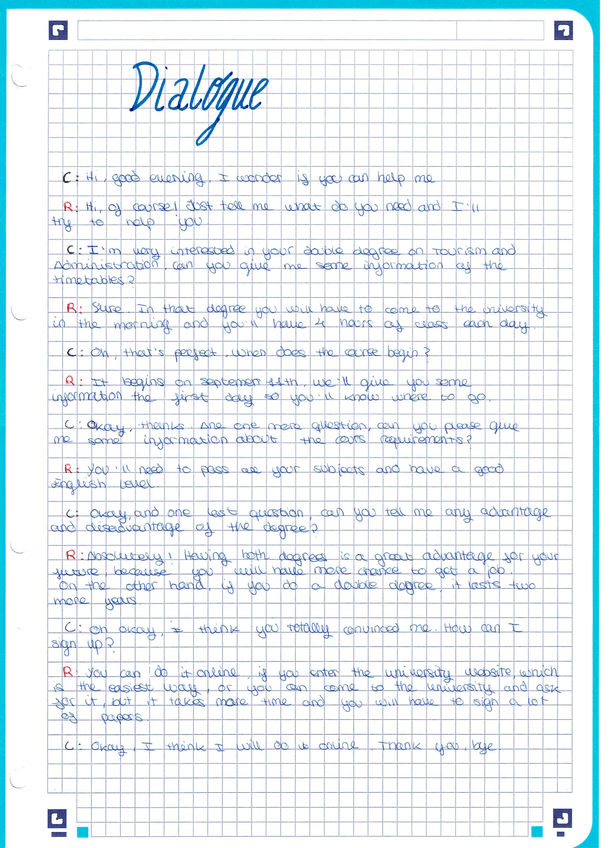 Dialogue
C: Hi, good evening, I wonder if you can help me
R: Hi, of course! Just tell me what do you need and I'll
try to help you
C: I'm very interested in your double degree on Tourism and
Administration, can you give me some information of the
timetables?
R: Sure. In that degree you will have to come to the university
in the morning and you'll have 4 hours of class each day
C: Oh, that's perfect, when does the course begin?
R: It begins on septemer 11th, we'll give you some
information the first day so you'll know where to go.
C: Okay, thanks. And one more question, can you please give
me some information about the cours requirements?
R: You'll need to pass all your subjects and have a good
English level.
C: Okay, and one last question, can you tell me any advantage
and desadvantage of the degree?
R: Absolutely! Having both degrees is a great advantage for your
future because you will have more chance to get a job.
On the other hand, if you do a double degree, it lasts two
more years.
C: Oh okay, I think you totally convinced me. How can I
sign up?
R: You can do it online, if you enter the university website, which
is the easiest way, or you can come to the university and ask
for it, but it takes more time and you will have to sign a lot
of papers.
C: Okay, I think I will do it online. Thank you, bye